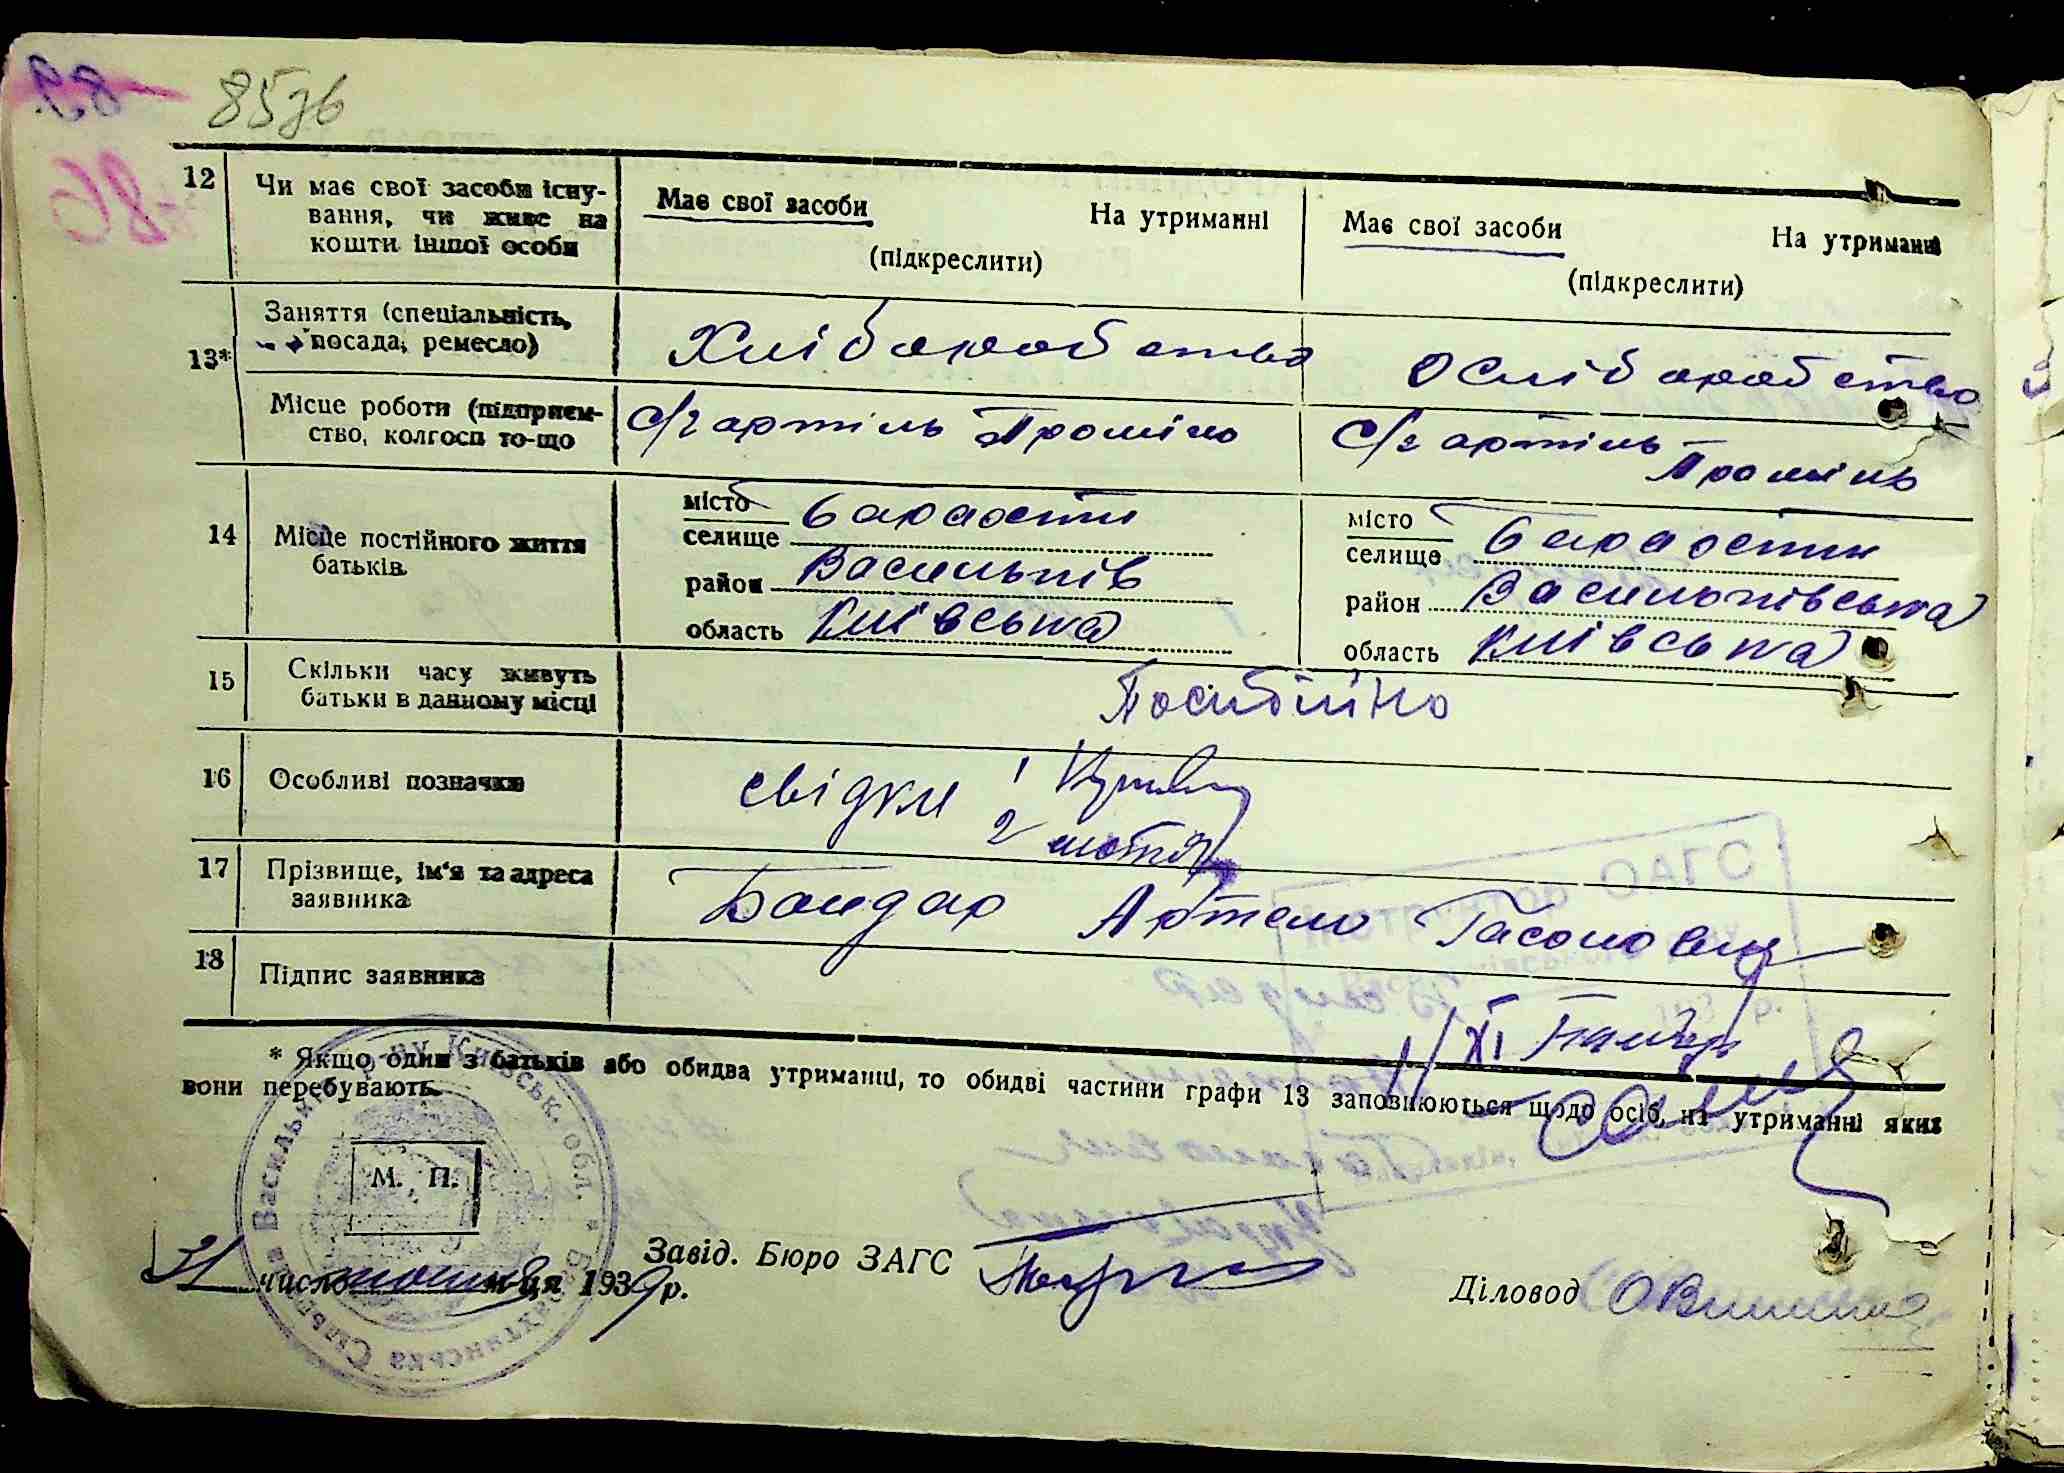 85зв
12
Чи має свої засоби існу-
вання, чи живе на
кошти іншої особи
Має свої засоби На утриманні
(підкреслити)
Має свої засоби На утриманні
(підкреслити)
13*
Заняття (спеціальність,
посада, ремесло)
Хліборобство
Хліборобство
Місце роботи (підприєм-
ство, колгосп то-що
с/г артіль Промінь
с/г артіль
Промінь
14
Місце постійного життя
батьків
місто
селище
район Васильків
область Київська
місто
селище
район Васильківська
область Київська
15
Скільки часу живуть
батьки в данному місці
Постійно
16
Особливі позначки
свідки 1
2
17
Прізвище, ім'я та адреса
заявника
Бондар Артем
18
Підпис заявника
1/XI
* Якщо один з батьків або обидва утриманці, то обидві частини графи 13 заповнюються щодо осіб, на утриманні яких
вони перебувають.
М. П.
Завід. Бюро ЗАГС
31 число м-ця 1939 р.
Діловод